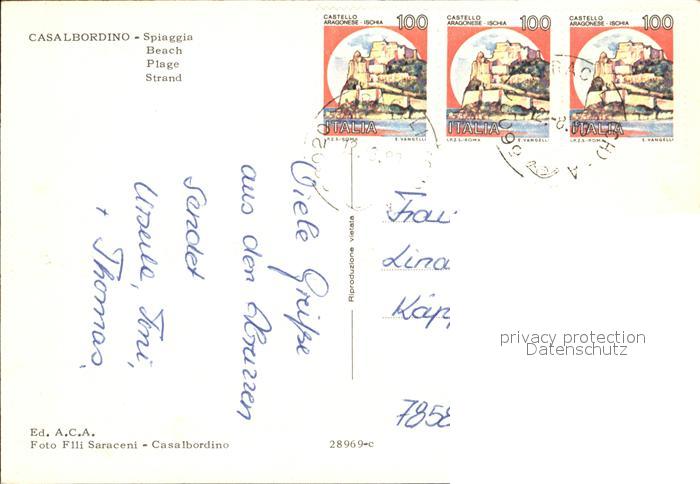 CASALBORDINO - Spiaggia
Beach
Plage
Strand
CASTELLO
ARAGONESE - ISCHIA
100
ITALIA
I.P.Z.S.-ROMA E. VANGELLI
CASTELLO
ARAGONESE - ISCHIA
100
ITALIA
I.P.Z.S.-ROMA E. VANGELLI
CASTELLO
ARAGONESE - ISCHIA
100
ITALIA
I.P.Z.S.-ROMA E. VANGELLI
Viele Grüße
aus den Abruzzen
sendet
Ursula, Toni,
+ Thomas.
Riproduzione vietata
Frau
Lina
Käpp
7858
privacy protection
Datenschutz
Ed. A.C.A.
Foto Flli Saraceni - Casalbordino
28969-c